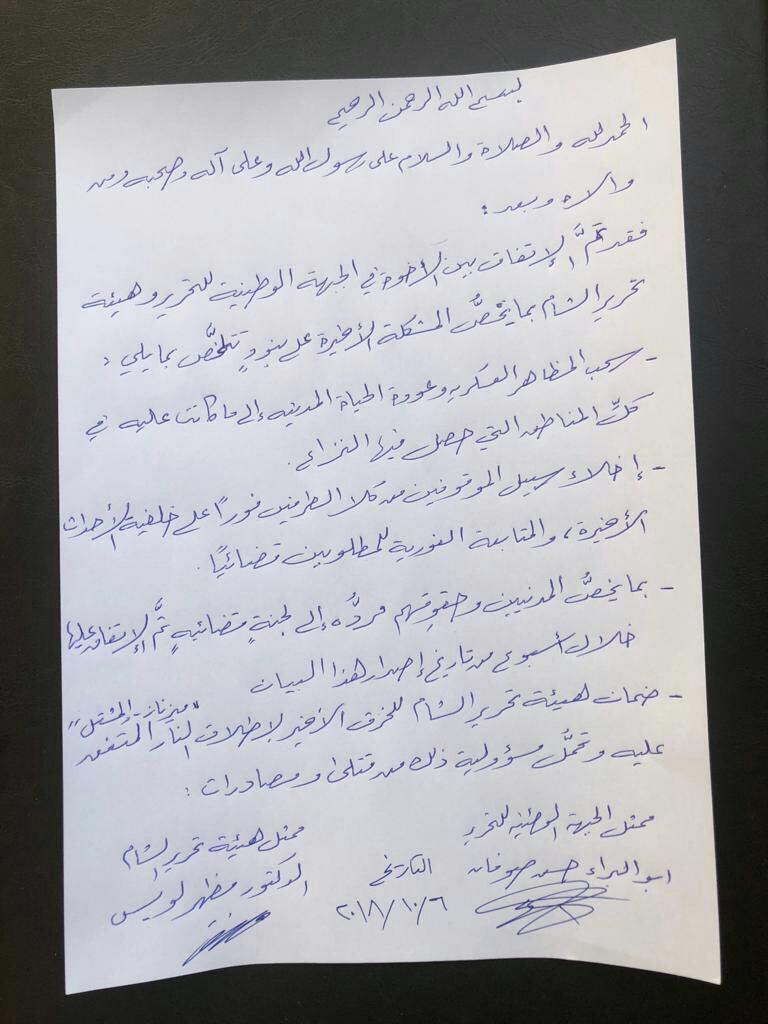 بسم الله الرحمن الرحيم
الحمد لله والصلاة والسلام على رسول الله وعلى آله وصحبه ومن
والاه وبعد:
فقد تمَّ الإتفاق بين الأخوة في الجبهة الوطنية للتحرير وهيئة
تحرير الشام بما يخصُّ المشكلة الأخيرة على بنودٍ تتلخَّص بما يلي:
- سحب المظاهر العسكريه وعودة الحياة المدنيه إلى ما كانت عليه في
كلِّ المناطق التي حصل فيها النزاع.
- إخلاء سبيل الموقوفين من كلا الطرفين فوراً على خلفية الأحداث
الأخيرة، والمتابعة الفورية للمطلوبين قضائيًا.
- بما يخصُّ المدنيين وحقوقهم مردُّه إلى لجنةٍ قضائيهٍ تمَّ الإتفاق عليها
خلال أسبوع من تاريخ إصدار هذا البيان
"ميزناز-المشقل"
- ضمان هيئة تحرير الشام للخرق الأخير لإطلاق النار المتفق
عليه وتحمُّل مسؤولية ذلك من قتلى ومصادرات:
ممثل الجبهة الوطنيه للتحرير
ممثل هيئة تحرير الشام
ابو البراء حسن صوفان
التاريخ
الدكتور مظهر لويس
٢٠١٨/١٠/٦